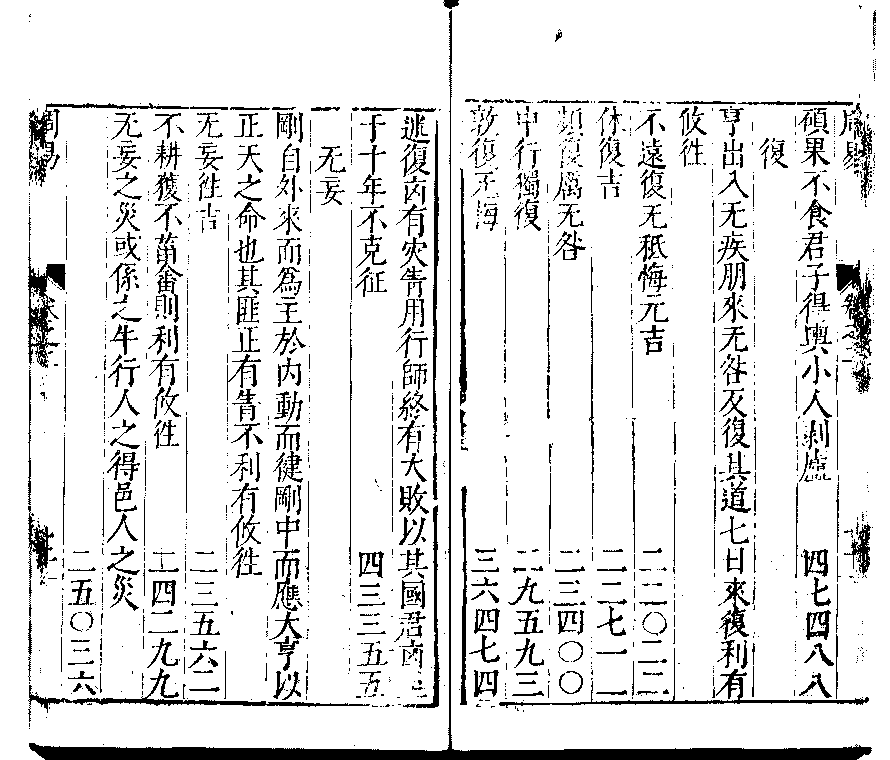 周易
碩果不食君子得輿小人剝廬 四七四八八
復
亨出入无疾朋來无咎反復其道七日來復利有
攸往
不遠復无祗悔元吉 二二〇二二
休復吉 二二七一二
頻復厲无咎 二三四〇〇
中行獨復 二九五九三
敦復无悔 三六四七四
迷復凶有灾眚用行師終有大敗以其國君凶至
于十年不克征 四三三五五
无妄
剛自外來而爲主於內動而健剛中而應大亨以
正天之命也其匪正有眚不利有攸往
无妄往吉 二三五六二
不耕穫不菑畬則利有攸往 二四二九九
无妄之災或係之牛行人之得邑人之災
二五〇三六
周易